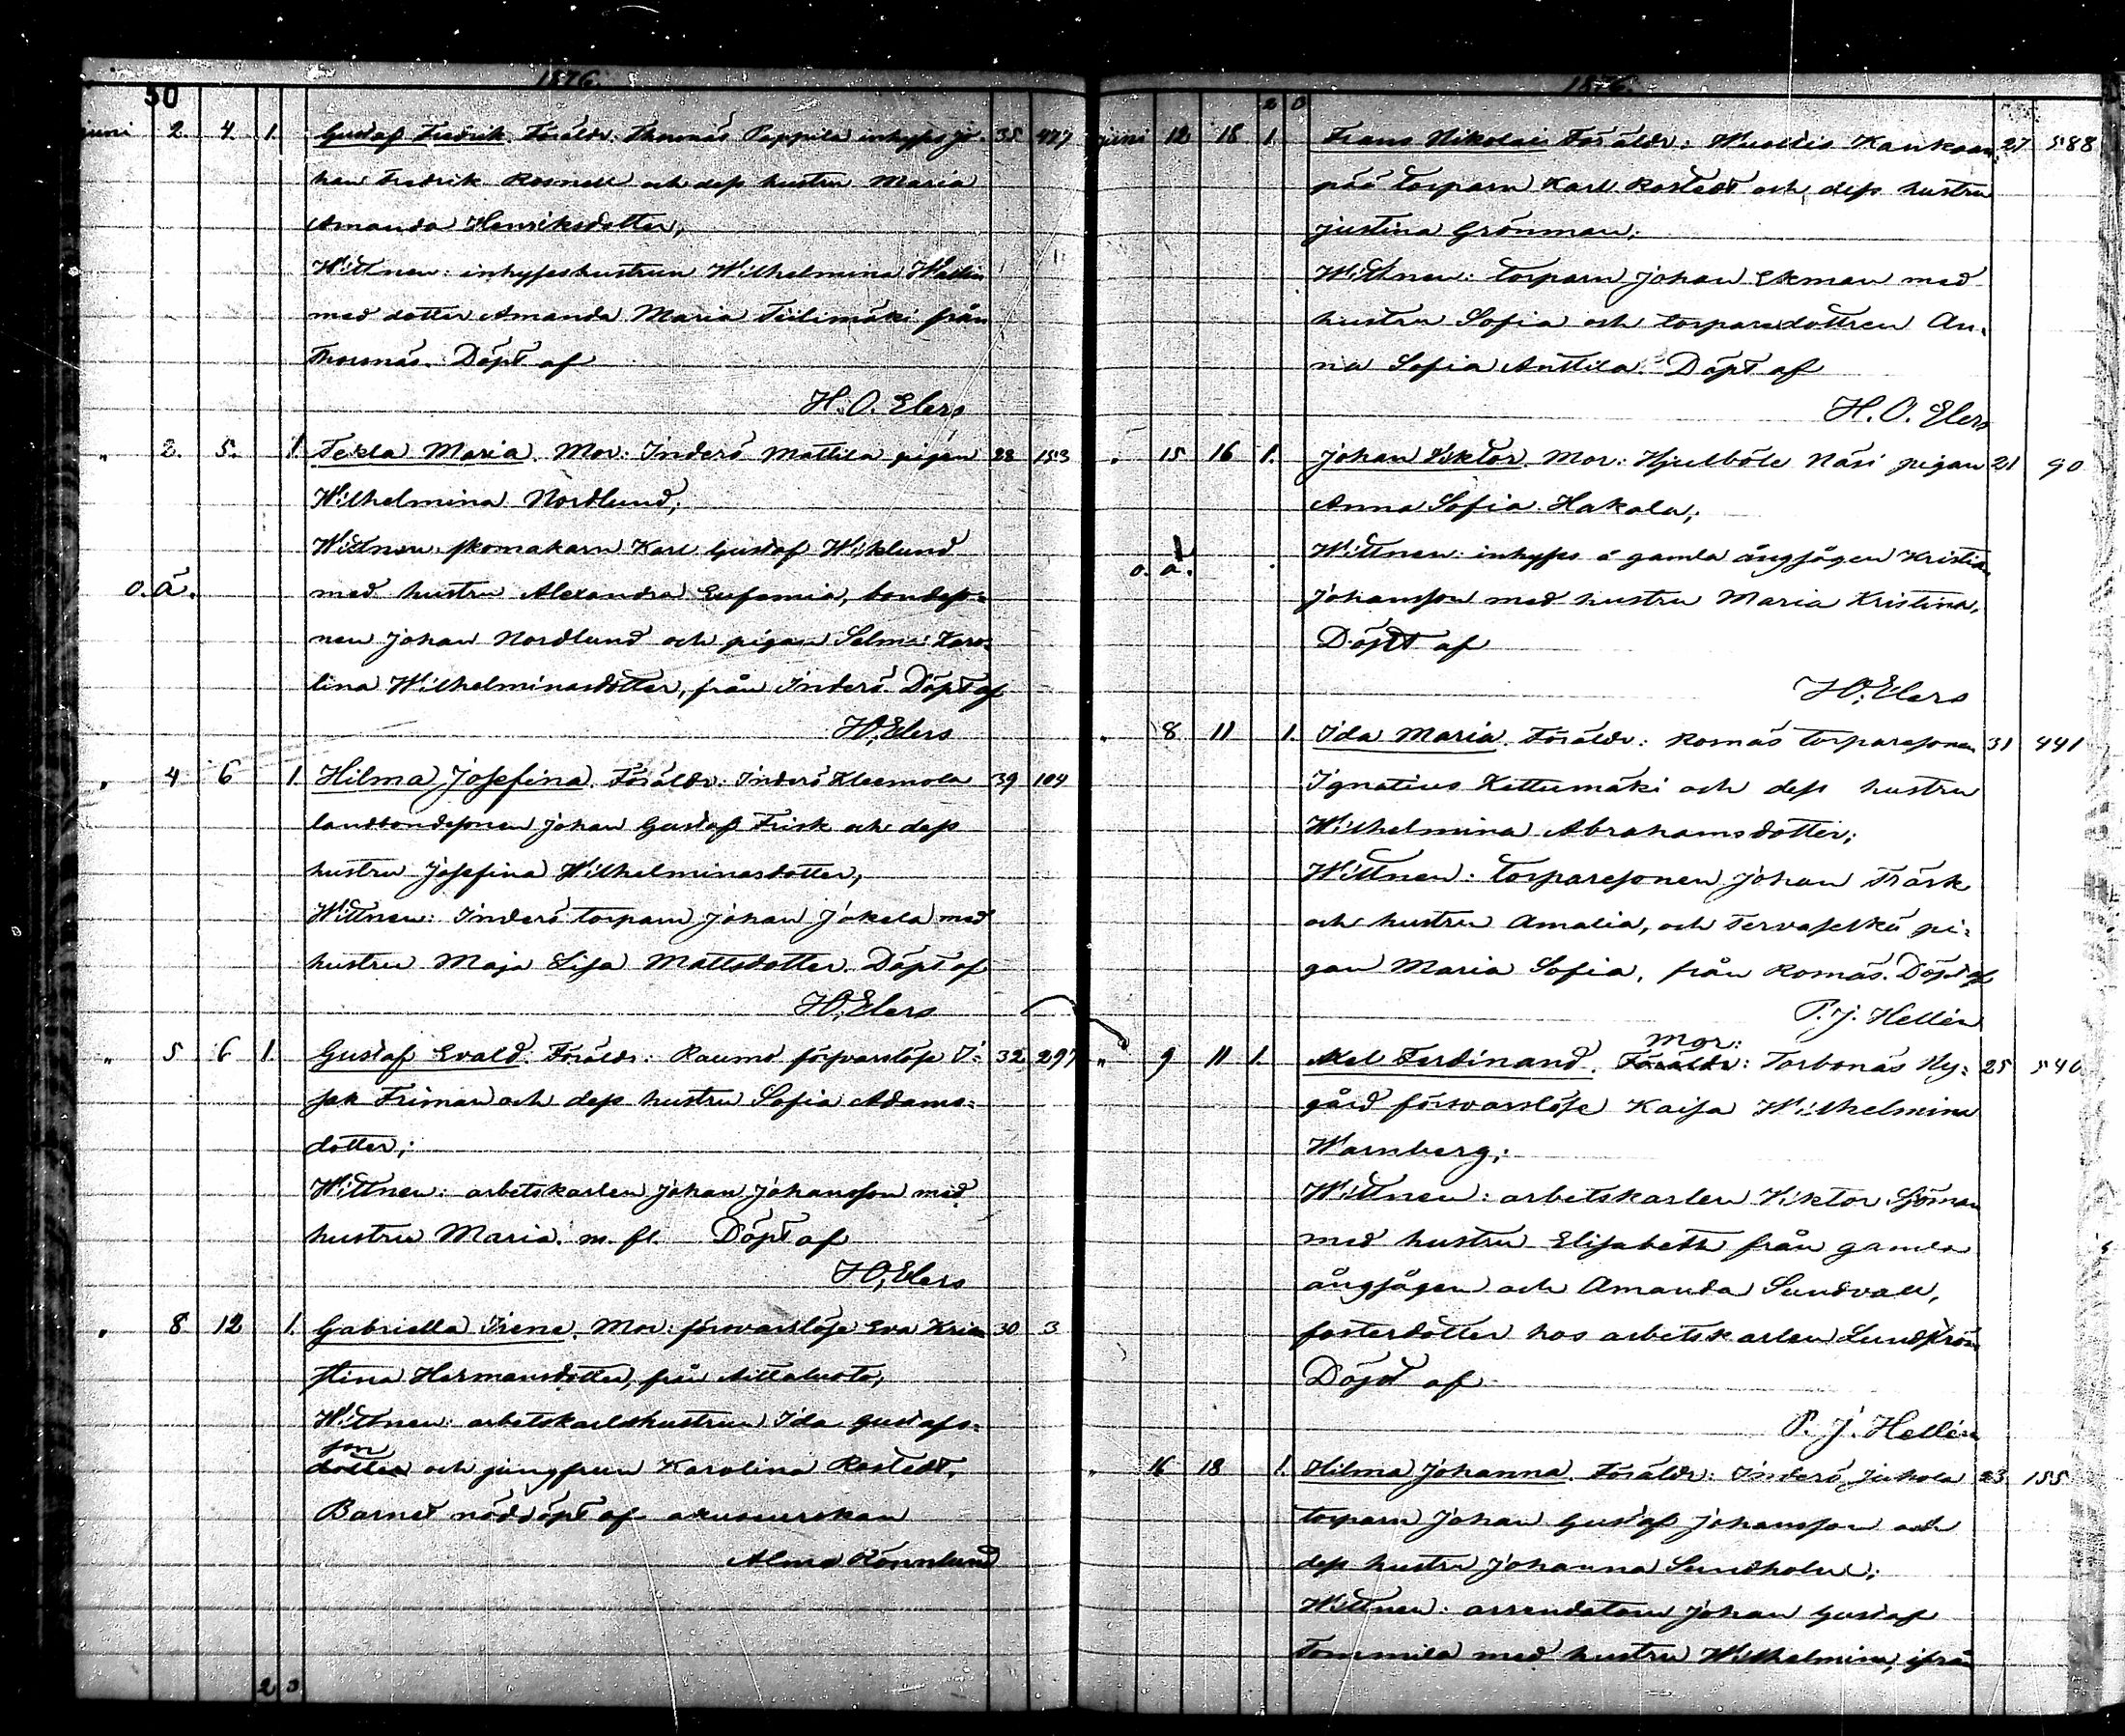 50
1876.
juni 2. 4. 1. Gustaf Fredrik. Föräldr. Thomäs Pappila inhyses Jo- 35 477
han Fredrik Rosnell och dess hustru Maria
Amanda Henriksdotter;
Wittnen: inhyseshustrun Wilhelmina Wallin
med dotter Amanda Maria Teilimäki från
Thomäs. Döpt af
H. O. Elers
" 2. 5. 1. Tekla Maria. Mor: Inderö Mattila pigan 28 153
Wilhelmina Nordlund;
Wittnen skomakarn Karl Gustaf Wiklund
o. ä. med hustru Alexandra Eufemia, bondeso-
nen Johan Nordlund och pigan Selma Karo-
lina Wilhelminasdotter, från Inderö. Döpt af
H.O. Elers
" 4 6 1. Hilma Josefina. Föräldr. Inderö Kleemola 39 104
landbondesonen Johan Gustaf Frisk och dess
hustru Josefina Wilhelminasdotter;
Wittnen: Inderö torparn Johan Jokela med
hustru Maja Lisa Mattsdotter. Döpt af
H.O. Elers
" 5 6 1. Gustaf Evald. Föräldr: Raumo försvarslöse I- 32 297
sak Friman och dess hustru Sofia Adams-
dotter;
Wittnen: arbetskarlen Johan Johansson med
hustru Maria. m. fl. Döpt af
H.O. Elers
" 8 12 1. Gabriella Irene. Mor: försvarslösa Eva Kris- 30 3
stina Hermansdotter, från Aittaluoto;
Wittnen: arbetskarlshustrun Ida Gustafs-
son
dotter och jungfrun Karolina Rostedt,
Barnet nöddöpt af ackuscherskan
Alma Rönnlund
2 3
1876.
2 3
juni 12 18 1. Frans Nikolai Föräldr: Wuoltis Kankaan- 27 588
pää torparn Karl Rostedt och dess hustru
Justina Grönman;
Wittnen: torparn Johan Ekman med
hustru Sofia och torparedottren An-
na Sofia Anttila. Döpt af
H. O. Elers
" 15 16 1. Johan Viktor. Mor: Hjulböle Näsi pigan 21 90
Anna Sofia Hakala;
o. ä. Wittnen: inhyses å gamla ångsågen Kristian
Johansson med hustru Maria Kristina,
Döpt af
H.O. Elers
" 8 11 1. Ida Maria. Föräldr: Romäs torparesonen 31 441
Ignatius Kettumäki och dess hustru
Wilhelmina Abrahamsdotter;
Wittnen: torparesonen Johan Träsk
och hustru Amalia, och Tervaselkä pi-
gan Maria Sofia, från Romäs. Döpt af
P. J. Hellén
Mor:
" 9 11 1. Axel Ferdinand. Föräldr: Torbonäs Ny- 25 540
gård försvarslösa Kaisa Wilhelmina
Warnberg;
Wittnen: arbetskarlen Viktor Sjöman
med hustru Elisabeth från gamla
ångsågen och Amanda Sundvall,
fosterdotter hos arbetskarlen Lundström
Döpt af
P. J. Hellén
" 16 18 1. Hilma Johanna. Föräldr: Inderö Juhola 23 155
torparn Johan Gustaf Johansson och
dess hustru Johanna Sundholm;
Wittnen: arrendatorn Johan Gustaf
Tommila med hustru Wilhelmina, ifrån